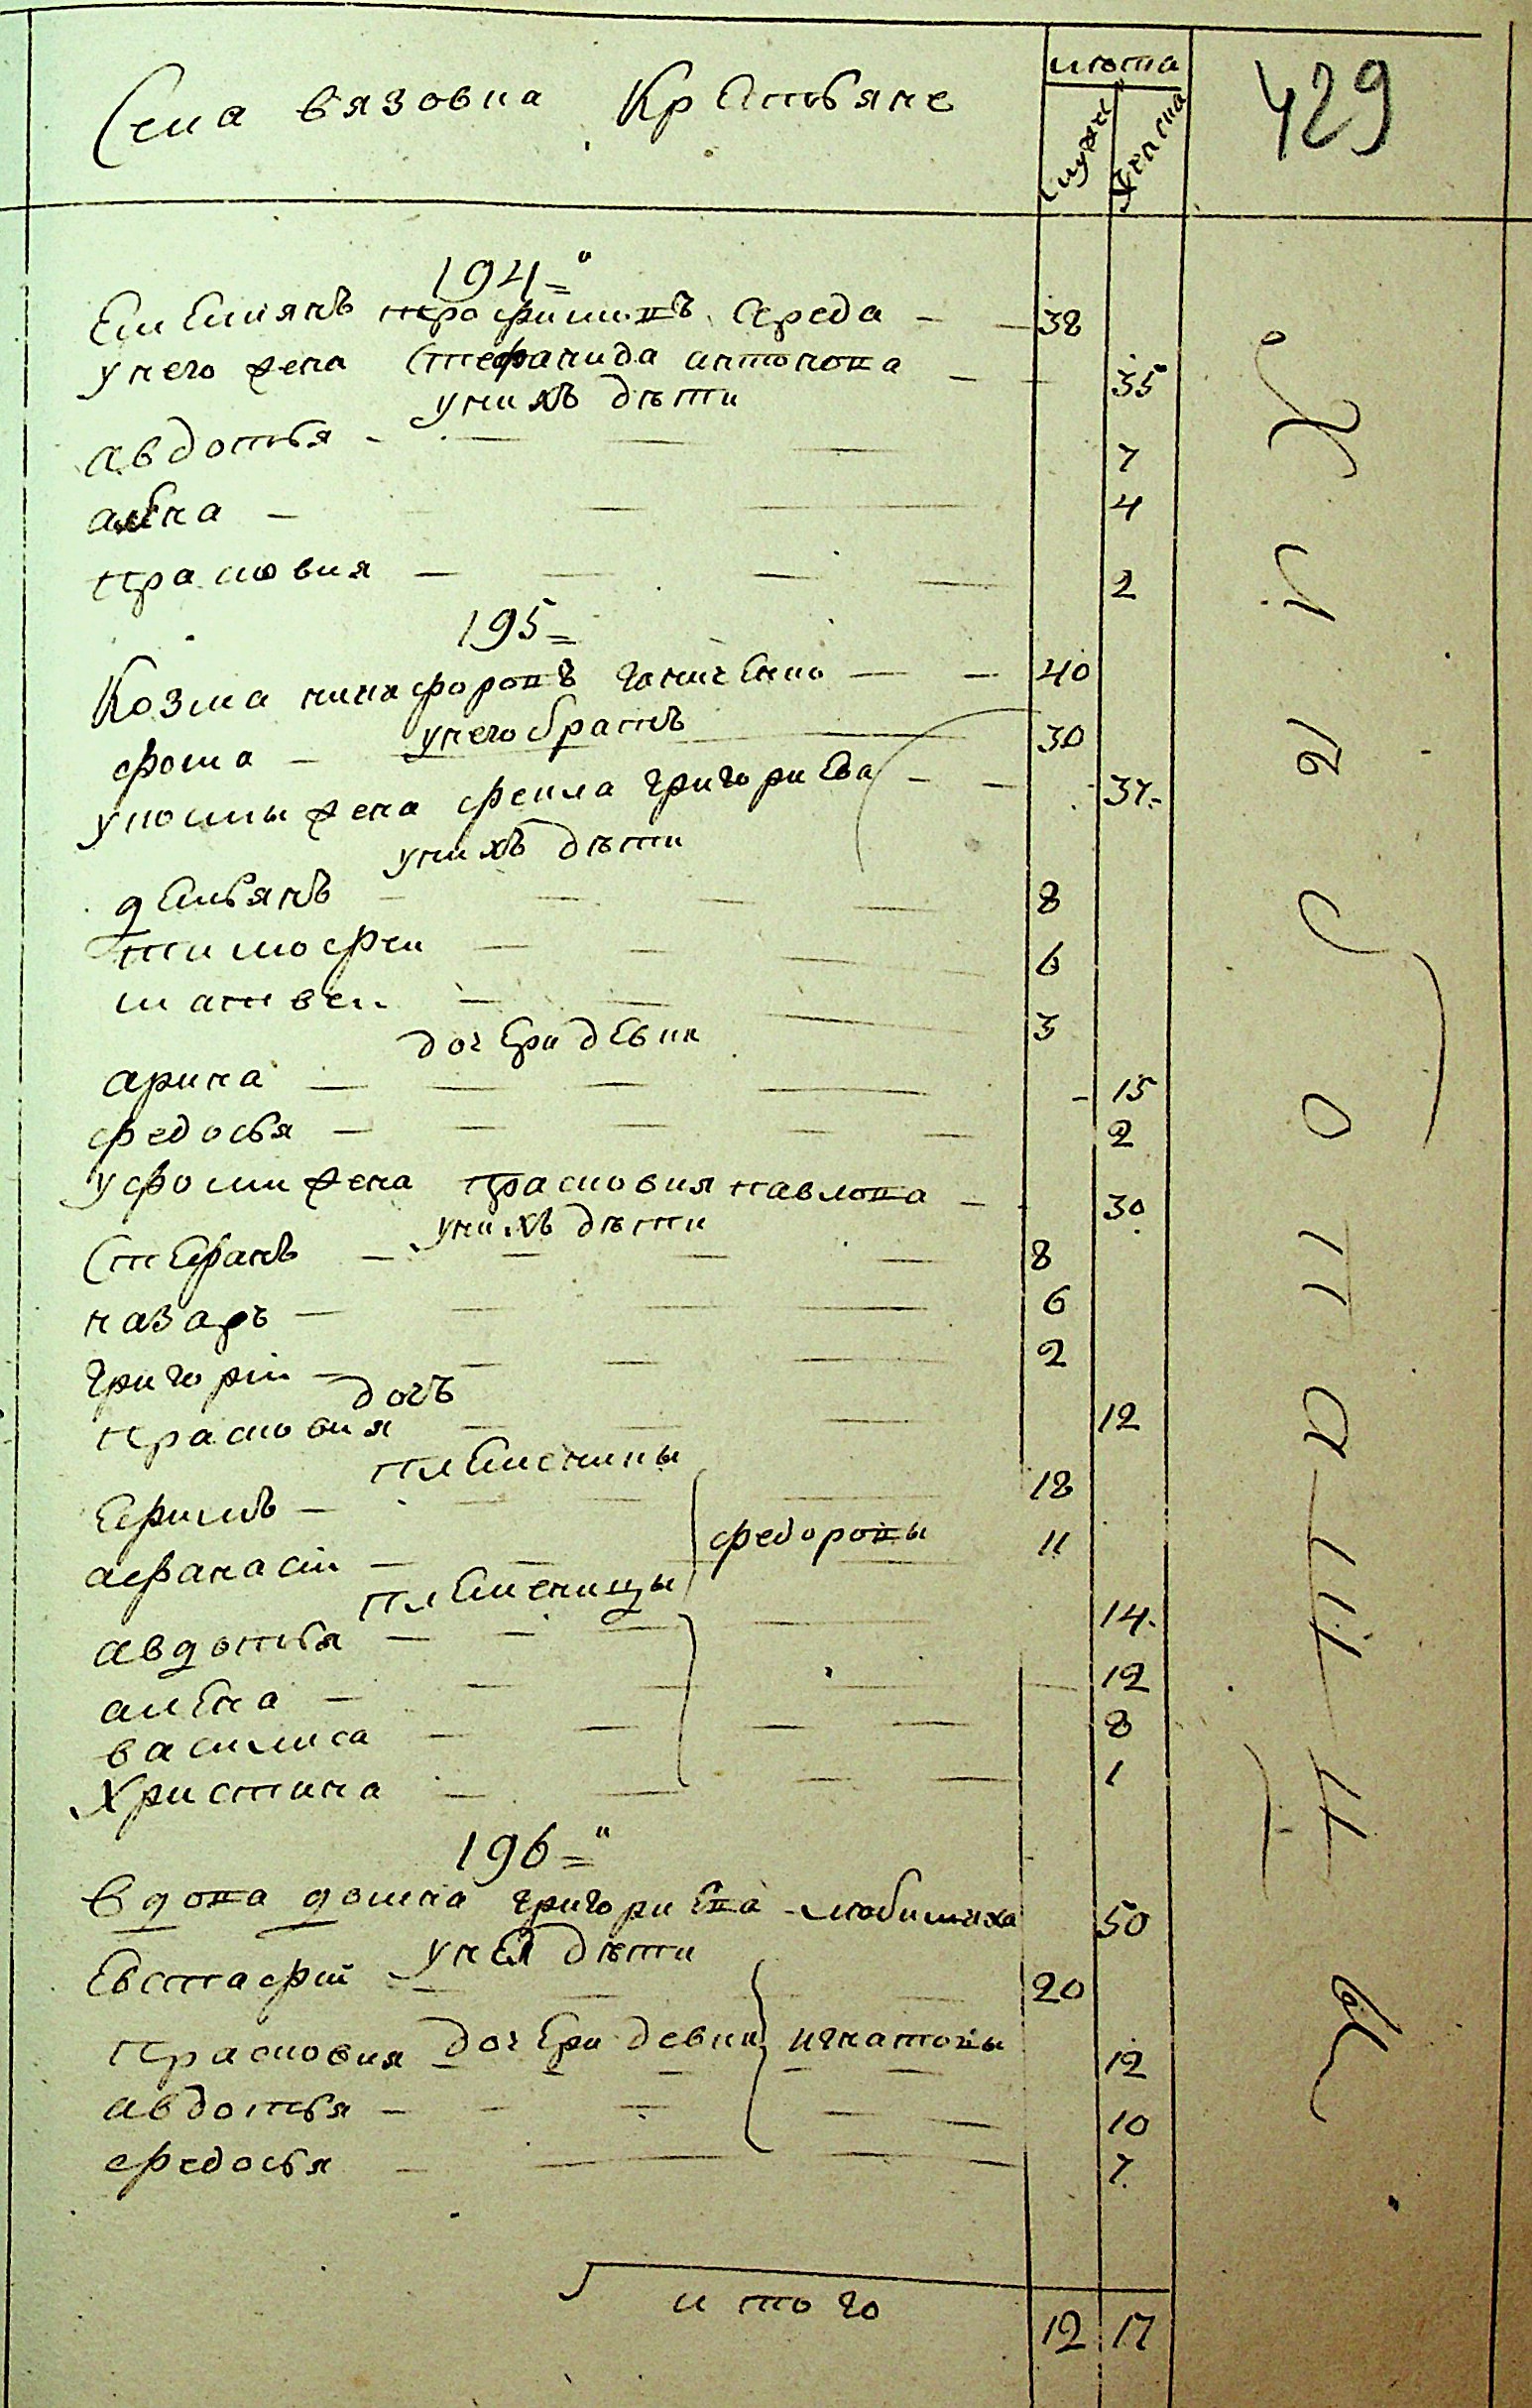 Села вязовка Крестьяне
лѣта
мужск женска
429
194
Емельянъ трофимовъ Середа 38
у него жена Стефанида антонова 35
у нихъ дѣти
авдотья 7
алена 4
прасковия 2
195
Козма никифоровъ 40
у него братъ
фома 30
у козмы жена фекла григориева 37
у нихъ дѣти
демьянъ 8
тимофеи 6
матвеи 3
дочери девки
арина 15
федосья 2
у фомы жена прасковия павлова 30
у нихъ дѣти
Стефанъ 8
назаръ 6
григорiи 2
дочь
прасковия 12
племеники
Ефимъ 18
федоровы
афанасiи 11
племеницы
авдотья 14
алена 12
василиса 8
Христина 1
196
вдова домна григориева любимиха 50
у нея дѣти
Евстафiи 20
дочери девки игнатовы
прасковия 12
авдотья 10
федосья 7
итого 12 17